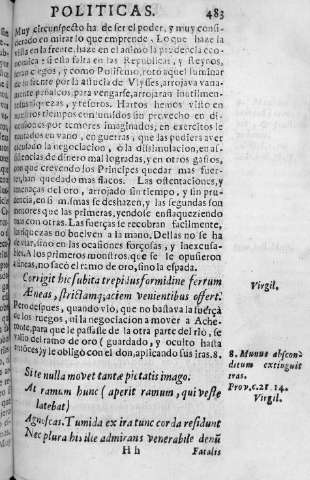 POLITICAS. 483
Muy circunspecto ha de ser el poder, y muy consi-
derado en mirar lo que emprende. Lo que haze la
vista en la frente, haze en el animo la prudencia eco-
nomica: si esta falta en las Republicas, y Reynos,
seran ciegos, y como Polifemo, roto aquel luminar
de su frente por la astucia de Vlysses, arrojava vana-
mente peñascos, para vengarse, arrojaran inutilmen-
te sus riquezas, y tesoros. Hartos hemos visto en
nuestros tiempos consumidos sin provecho en di-
versiones por temores imaginados, en exercitos le-
vantados en vano, en guerras, que las pudiera aver
escusado la negociacion, ò la dissimulacion, en as-
sistencias de dinero mal logradas, y en otros gastos,
con que creyendo los Principes quedar mas fuer-
tes, han quedado mas flacos. Las ostentaciones, y
amenaças del oro, arrojado sin tiempo, y sin pru-
dencia, en si mismas se deshazen, y las segundas son
menores que las primeras, yendose enflaqueziendo
unas con otras. Las fuerças se recobran facilmente,
las riquezas no buelven à la mano. Dellas no se ha
de usar, sino en las ocasiones forçosas, y inexcusa-
bles. A los primeros monstruos, que se le opusieron
à Eneas, no sacò el ramo de oro, sino la espada.
Corrigit hic subita trepidus formidine ferrum
Æneas, strictamq; aciem venientibus offert. Virgil.
Pero despues, quando viò, que no bastava la fuerça
de los ruegos, ni la negociacion a mover a Ache-
ronte, para que le passasse de la otra parte del rio, se
valio del ramo de oro (guardado, y oculto hasta
entonces) y le obligò con el don, aplicando sus iras. 8.
8. Munus abscon-
ditum extinguit
iras.
Prov. c. 21. 14.
Si te nulla movet tantæ pietatis imago.
At ramum hunc (aperit ramum, qui veste Virgil.
latebat)
Agnoscas. Tumida ex ira tunc corda residunt
Nec plura his: ille admirans venerabile donũ
H h Fatalis